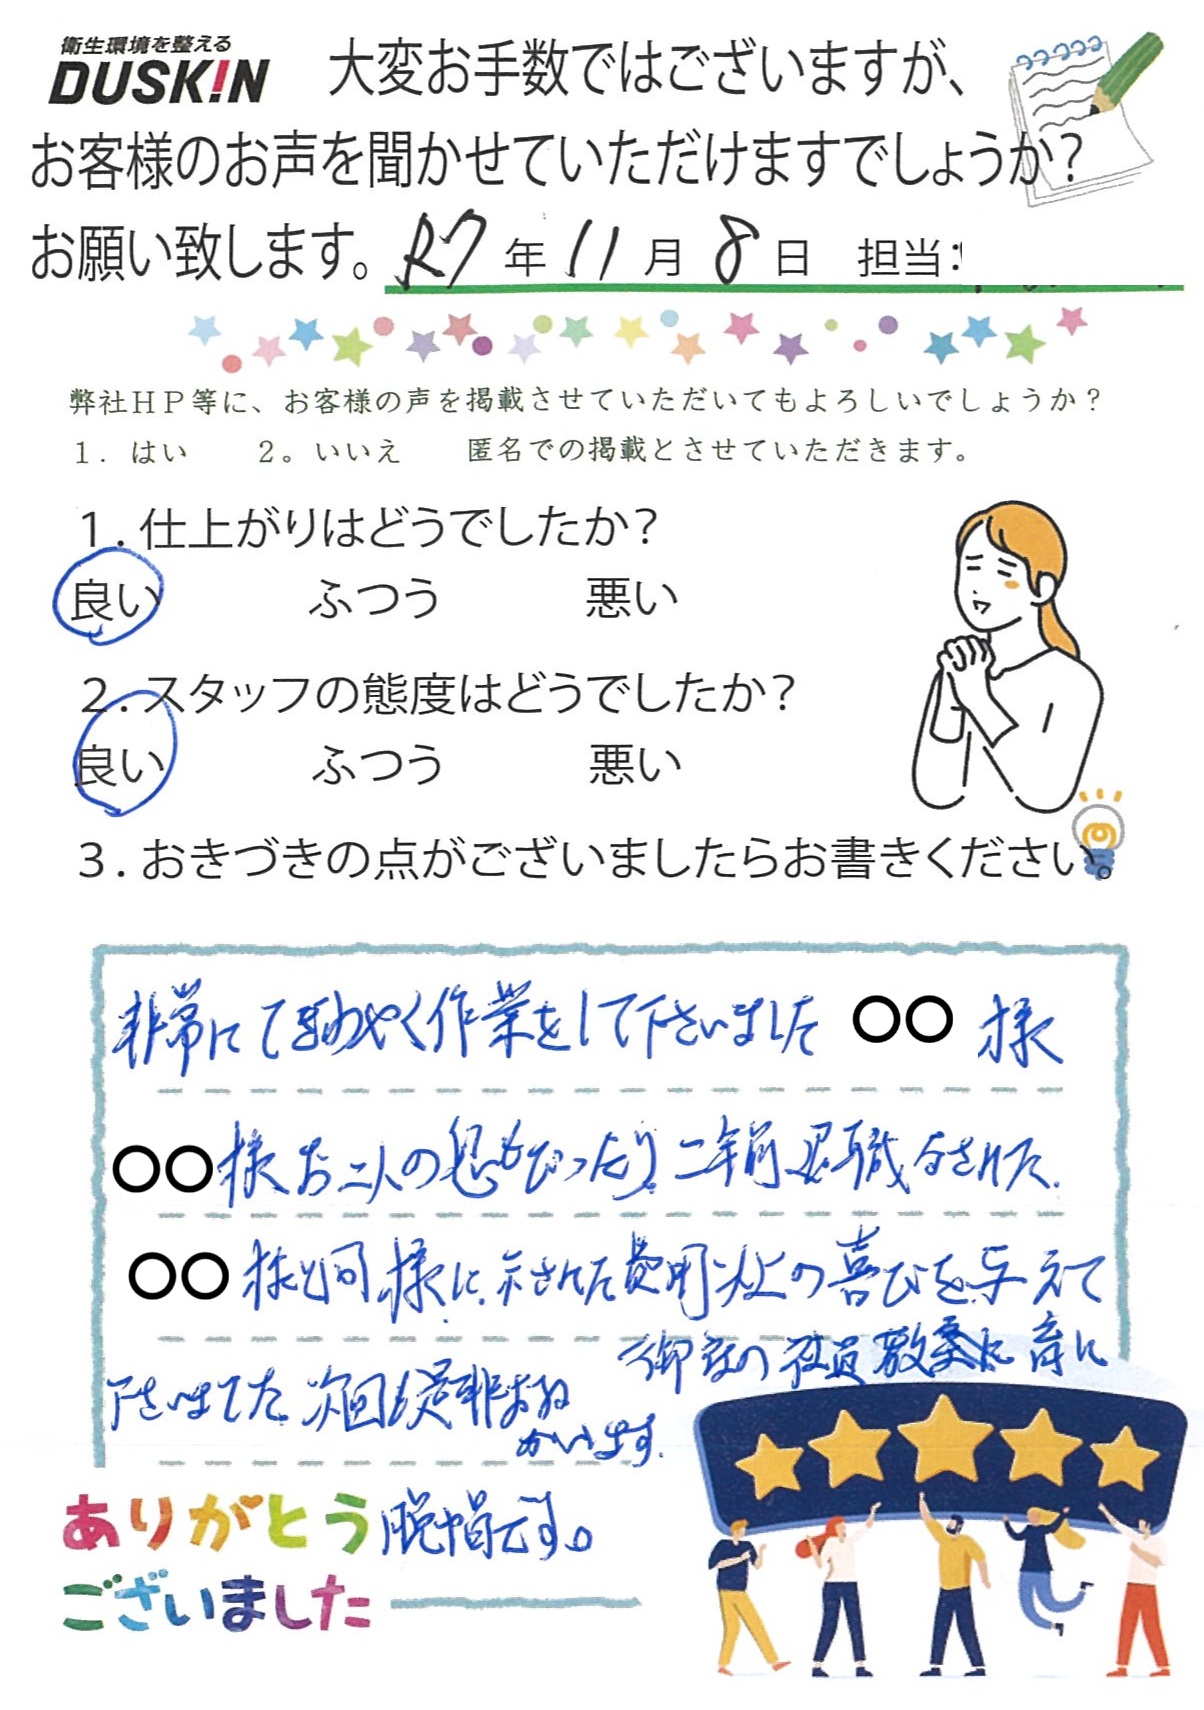 衛生環境を整える
DUSK!N
大変お手数ではございますが、
お客様のお声を聞かせていただけますでしょうか？
お願い致します。R7年11月8日 担当：
弊社ＨＰ等に、お客様の声を掲載させていただいてもよろしいでしょうか？
１．はい ２。いいえ 匿名での掲載とさせていただきます。
１．仕上がりはどうでしたか？
良い ふつう 悪い
２．スタッフの態度はどうでしたか？
良い ふつう 悪い
３．おきづきの点がございましたらお書きください。
非常にてまめやく作業をして下さいました 〇〇 様
〇〇様お二人の息もぴったり 二年前退職なされた
〇〇様と同様に、示された費用以上の喜びを与えて
下さいました 次回も是非おね
がいします。
御社の社員教育に
脱帽です。
ありがとう
ございました